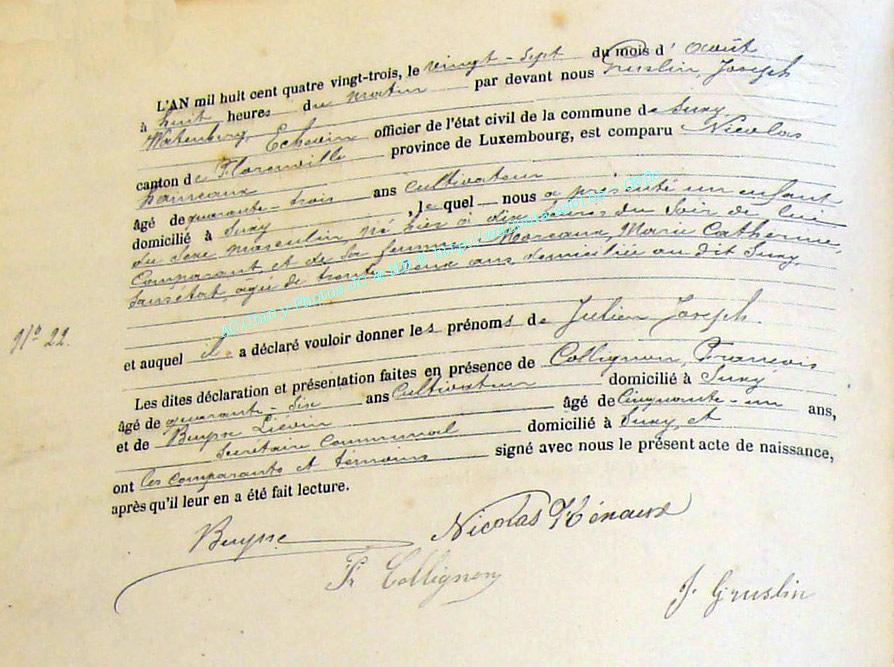 L'AN mil huit cent quatre vingt-trois, le vingt-sept du mois d'août
à huit heures du matin par devant nous Gruslin, Joseph
Echevin officier de l'état civil de la commune de Suxy
canton de Florenville province de Luxembourg, est comparu Nicolas
âgé de quarante-trois ans cultivateur
domicilié à Suxy, lequel — nous a présenté un enfant
du sexe masculin, né hier à dix heures du soir de lui
comparant et de sa femme Moreaux, Marie Catherine,
sans état, agée de trente deux ans, domiciliée au dit Suxy
N° 22.
et auquel il a déclaré vouloir donner les prénoms de Julien Joseph
Les dites déclaration et présentation faites en présence de Collignon, François
âgé de quarante-six ans cultivateur domicilié à Suxy
et de Buysse Liévin âgé de cinquante-un ans,
Secrétaire communal domicilié à Suxy, et
ont les comparants et témoins signé avec nous le présent acte de naissance,
après qu'il leur en a été fait lecture.
Buysse Nicolas Hénaux
Fr Collignon
J. Gruslin